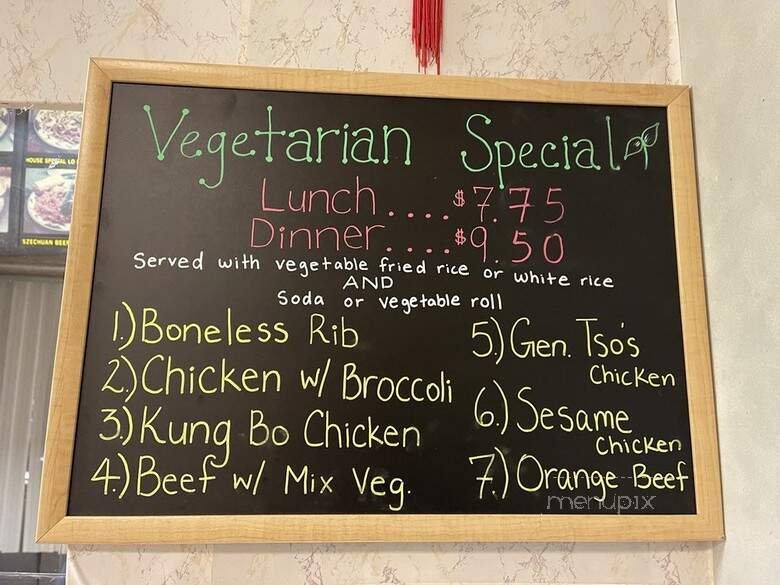 Vegetarian Special
Lunch....$7.75
Dinner....$9.50
Served with vegetable fried rice or white rice
AND
Soda or vegetable roll
1.) Boneless Rib
2.) Chicken w/ Broccoli
3.) Kung Bo Chicken
4.) Beef w/ Mix Veg.
5.) Gen. Tso's
Chicken
6.) Sesame
Chicken
7.) Orange Beef
menupix
HOUSE SPECIAL LO
SZECHUAN BEEF